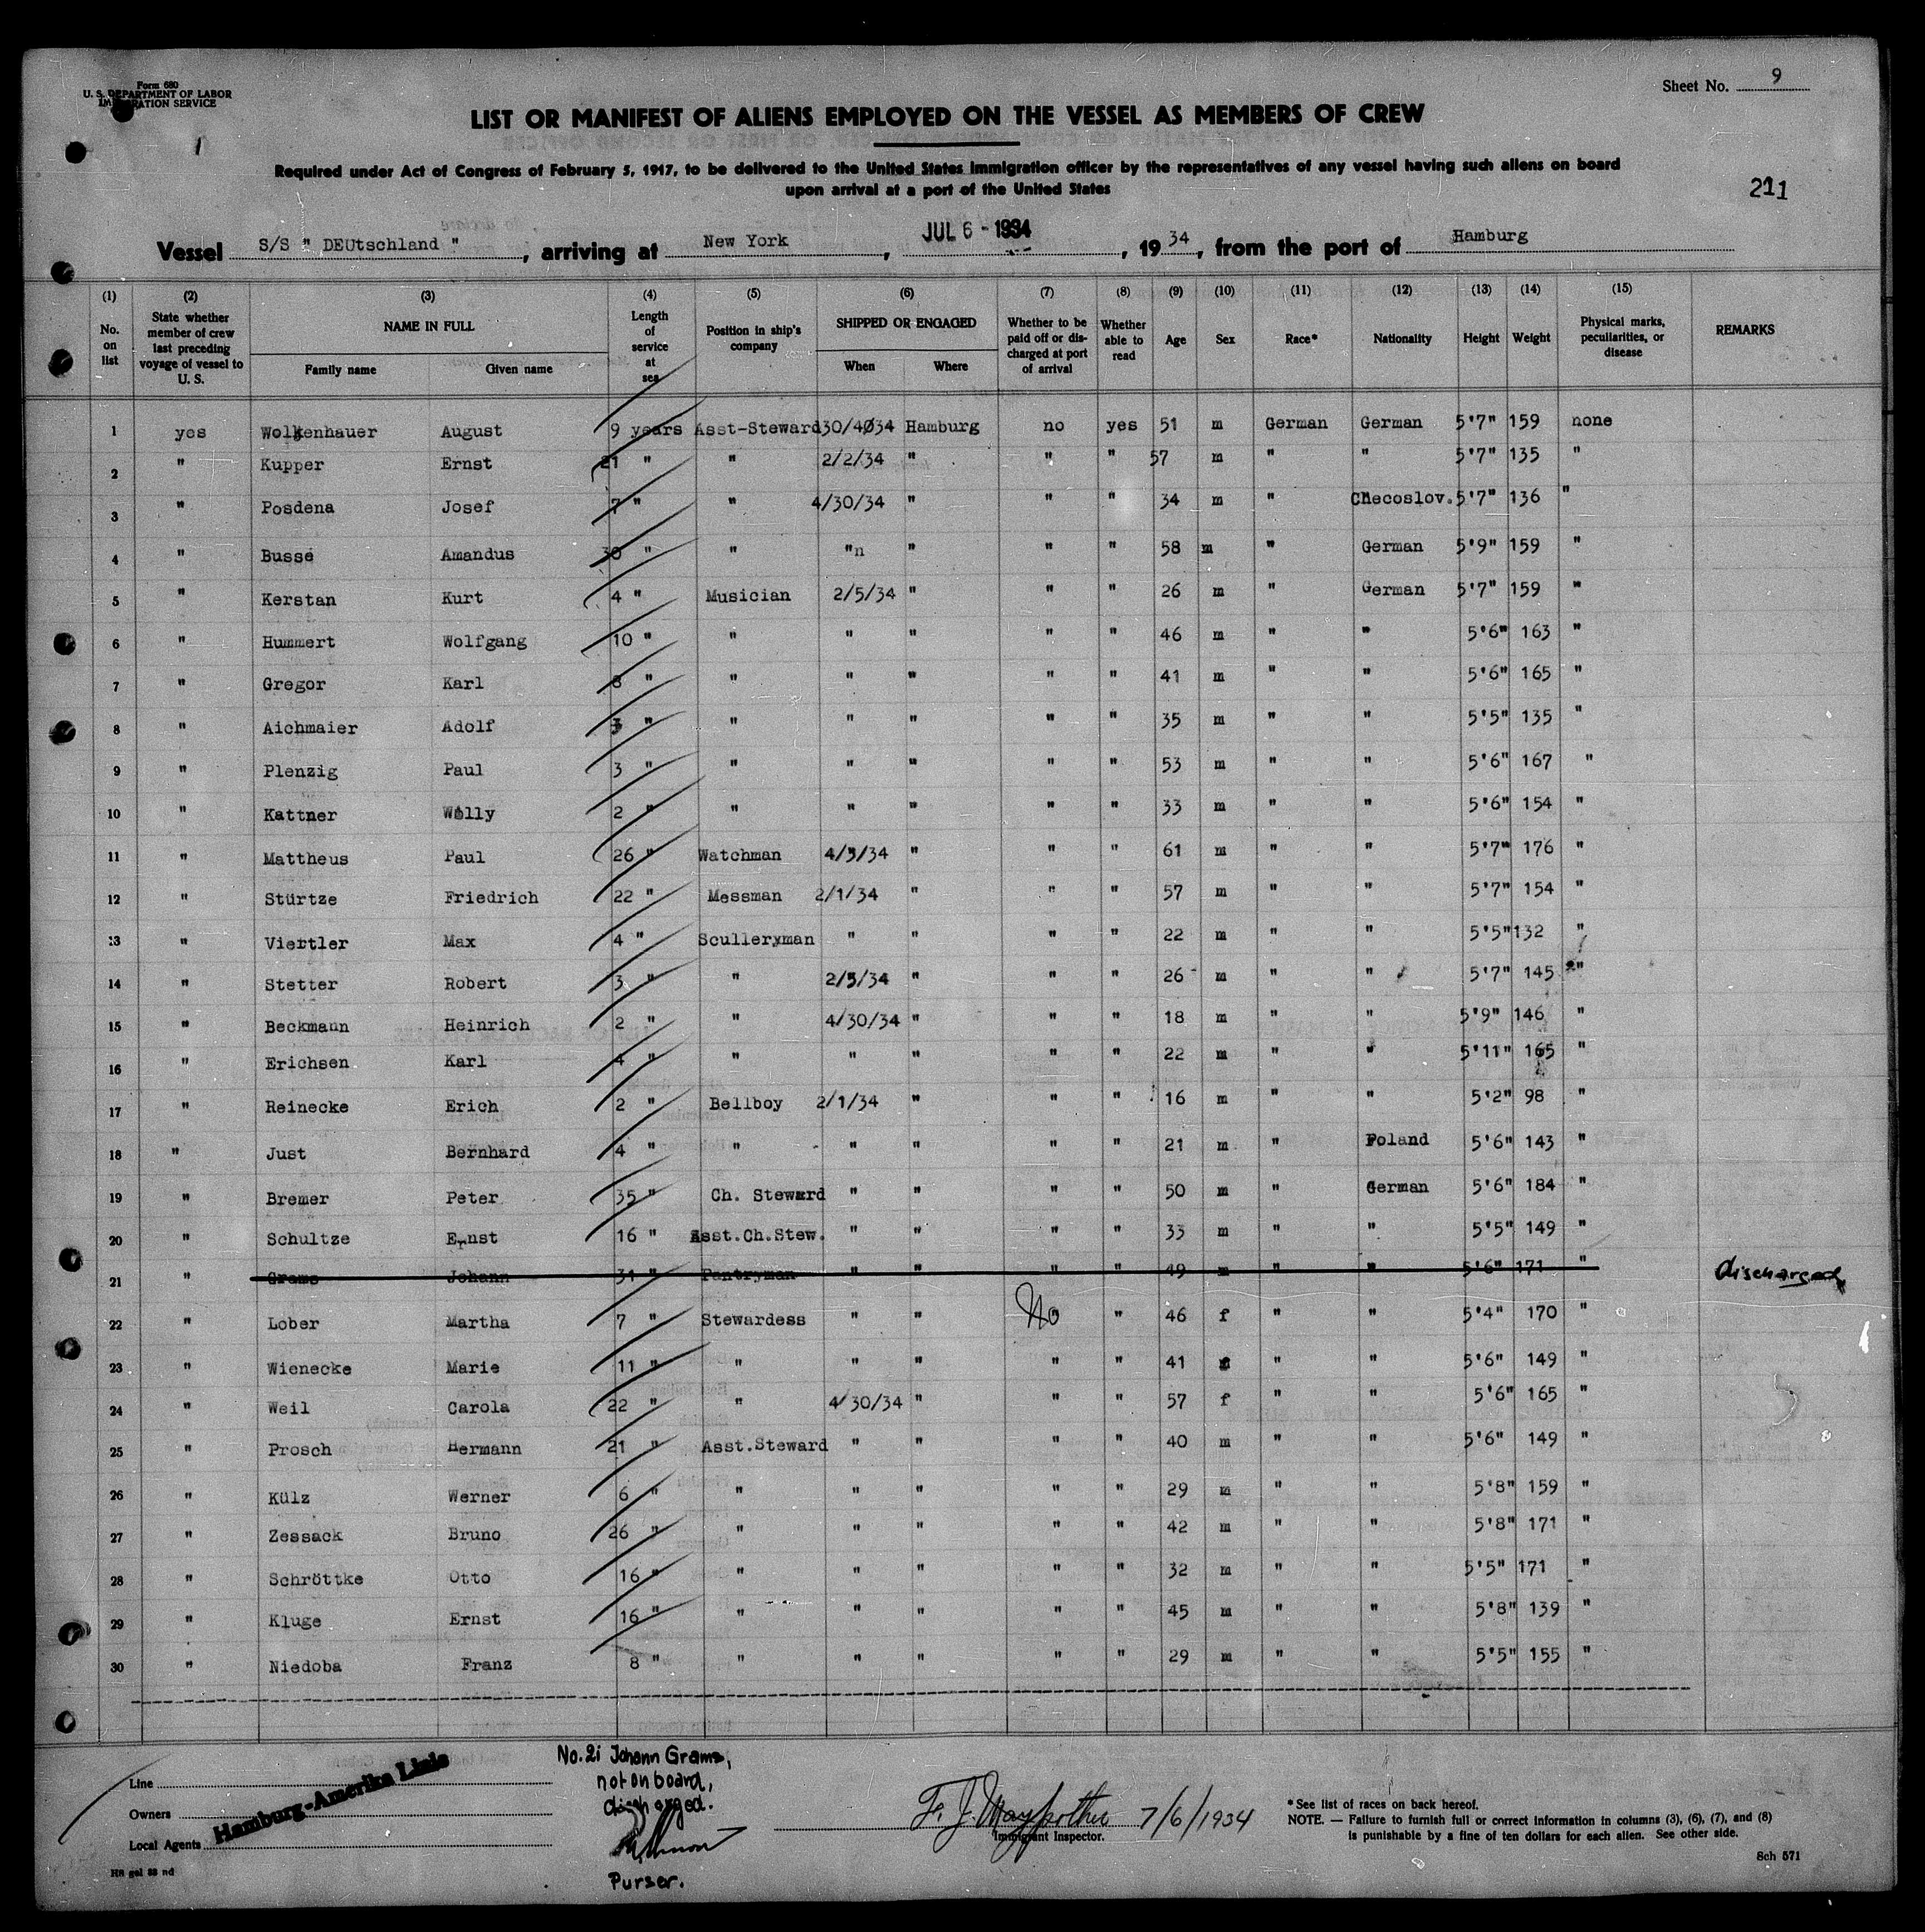 Form 680
U. S. DEPARTMENT OF LABOR
IMMIGRATION SERVICE
Sheet No. 9
LIST OR MANIFEST OF ALIENS EMPLOYED ON THE VESSEL AS MEMBERS OF CREW
1
Required under Act of Congress of February 5, 1917, to be delivered to the United States Immigration officer by the representatives of any vessel having such aliens on board
upon arrival at a port of the United States
211
Vessel S/S " DEUtschland ", arriving at New York, JUL 6 - 1934, 1934, from the port of Hamburg
(1) (2) (3) (4) (5) (6) (7) (8) (9) (10) (11) (12) (13) (14) (15)
No. on list State whether member of crew last preceding voyage of vessel to U. S. NAME IN FULL Length of service at sea Position in ship's company SHIPPED OR ENGAGED Whether to be paid off or discharged at port of arrival Whether able to read Age Sex Race* Nationality Height Weight Physical marks, peculiarities, or disease REMARKS
Family name Given name When Where
1 yes Wolkenhauer August 9 years Asst-Steward 30/4034 Hamburg no yes 51 m German German 5'7" 159 none
2 " Kupper Ernst 21 " " 2/2/34 " " " 57 m " " 5'7" 135 "
3 " Posdena Josef 7 " " 4/30/34 " " " 34 m " Checoslov. 5'7" 136 "
4 " Busse Amandus 30 " " "n " " " 58 m " German 5'9" 159 "
5 " Kerstan Kurt 4 " Musician 2/5/34 " " " 26 m " German 5'7" 159 "
6 " Hummert Wolfgang 10 " " " " " " 46 m " " 5'6" 163 "
7 " Gregor Karl 8 " " " " " " 41 m " " 5'6" 165 "
8 " Aichmaier Adolf 3 " " " " " " 35 m " " 5'5" 135 "
9 " Plenzig Paul 3 " " " " " " 53 m " " 5'6" 167 "
10 " Kattner Willy 2 " " " " " " 33 m " " 5'6" 154 "
11 " Mattheus Paul 26 " Watchman 4/5/34 " " " 61 m " " 5'7" 176 "
12 " Stürtze Friedrich 22 " Messman 2/1/34 " " " 57 m " " 5'7" 154 "
13 " Viertler Max 4 " Sculleryman " " " " 22 m " " 5'5" 132 "
14 " Stetter Robert 3 " " 2/5/34 " " " 26 m " " 5'7" 145 "
15 " Beckmann Heinrich 2 " " 4/30/34 " " " 18 m " " 5'9" 146 "
16 " Erichsen Karl 4 " " " " " " 22 m " " 5'11" 165 "
17 " Reinecke Erich 2 " Bellboy 2/1/34 " " " 16 m " " 5'2" 98 "
18 " Just Bernhard 4 " " " " " " 21 m " Poland 5'6" 143 "
19 " Bremer Peter 35 " Ch. Steward " " " " 50 m " German 5'6" 184 "
20 " Schultze Ernst 16 " Asst.Ch.Stew. " " " " 33 m " " 5'5" 149 "
21 " Grams Johann 31 " Pantryman " " " " 49 m " " 5'6" 171 " discharged
22 " Lober Martha 7 " Stewardess " " No " 46 f " " 5'4" 170 "
23 " Wienecke Marie 11 " " " " " " 41 f " " 5'6" 149 "
24 " Weil Carola 22 " " 4/30/34 " " " 57 f " " 5'6" 165 "
25 " Prosch Hermann 21 " Asst.Steward " " " " 40 m " " 5'6" 149 "
26 " Külz Werner 6 " " " " " " 29 m " " 5'8" 159 "
27 " Zessack Bruno 26 " " " " " " 42 m " " 5'8" 171 "
28 " Schröttke Otto 16 " " " " " " 32 m " " 5'5" 171 "
29 " Kluge Ernst 16 " " " " " " 45 m " " 5'8" 139 "
30 " Niedoba Franz 8 " " " " " " 29 m " " 5'5" 155 "
Line
Owners
Local Agents
Hamburg-Amerika Linie
No. 21 Johann Grams,
not on board,
discharged.
Purser.
F. J. 7/6/1934
Immigrant Inspector.
* See list of races on back hereof.
NOTE. — Failure to furnish full or correct information in columns (3), (6), (7), and (8)
is punishable by a fine of ten dollars for each alien. See other side.
Sch 571